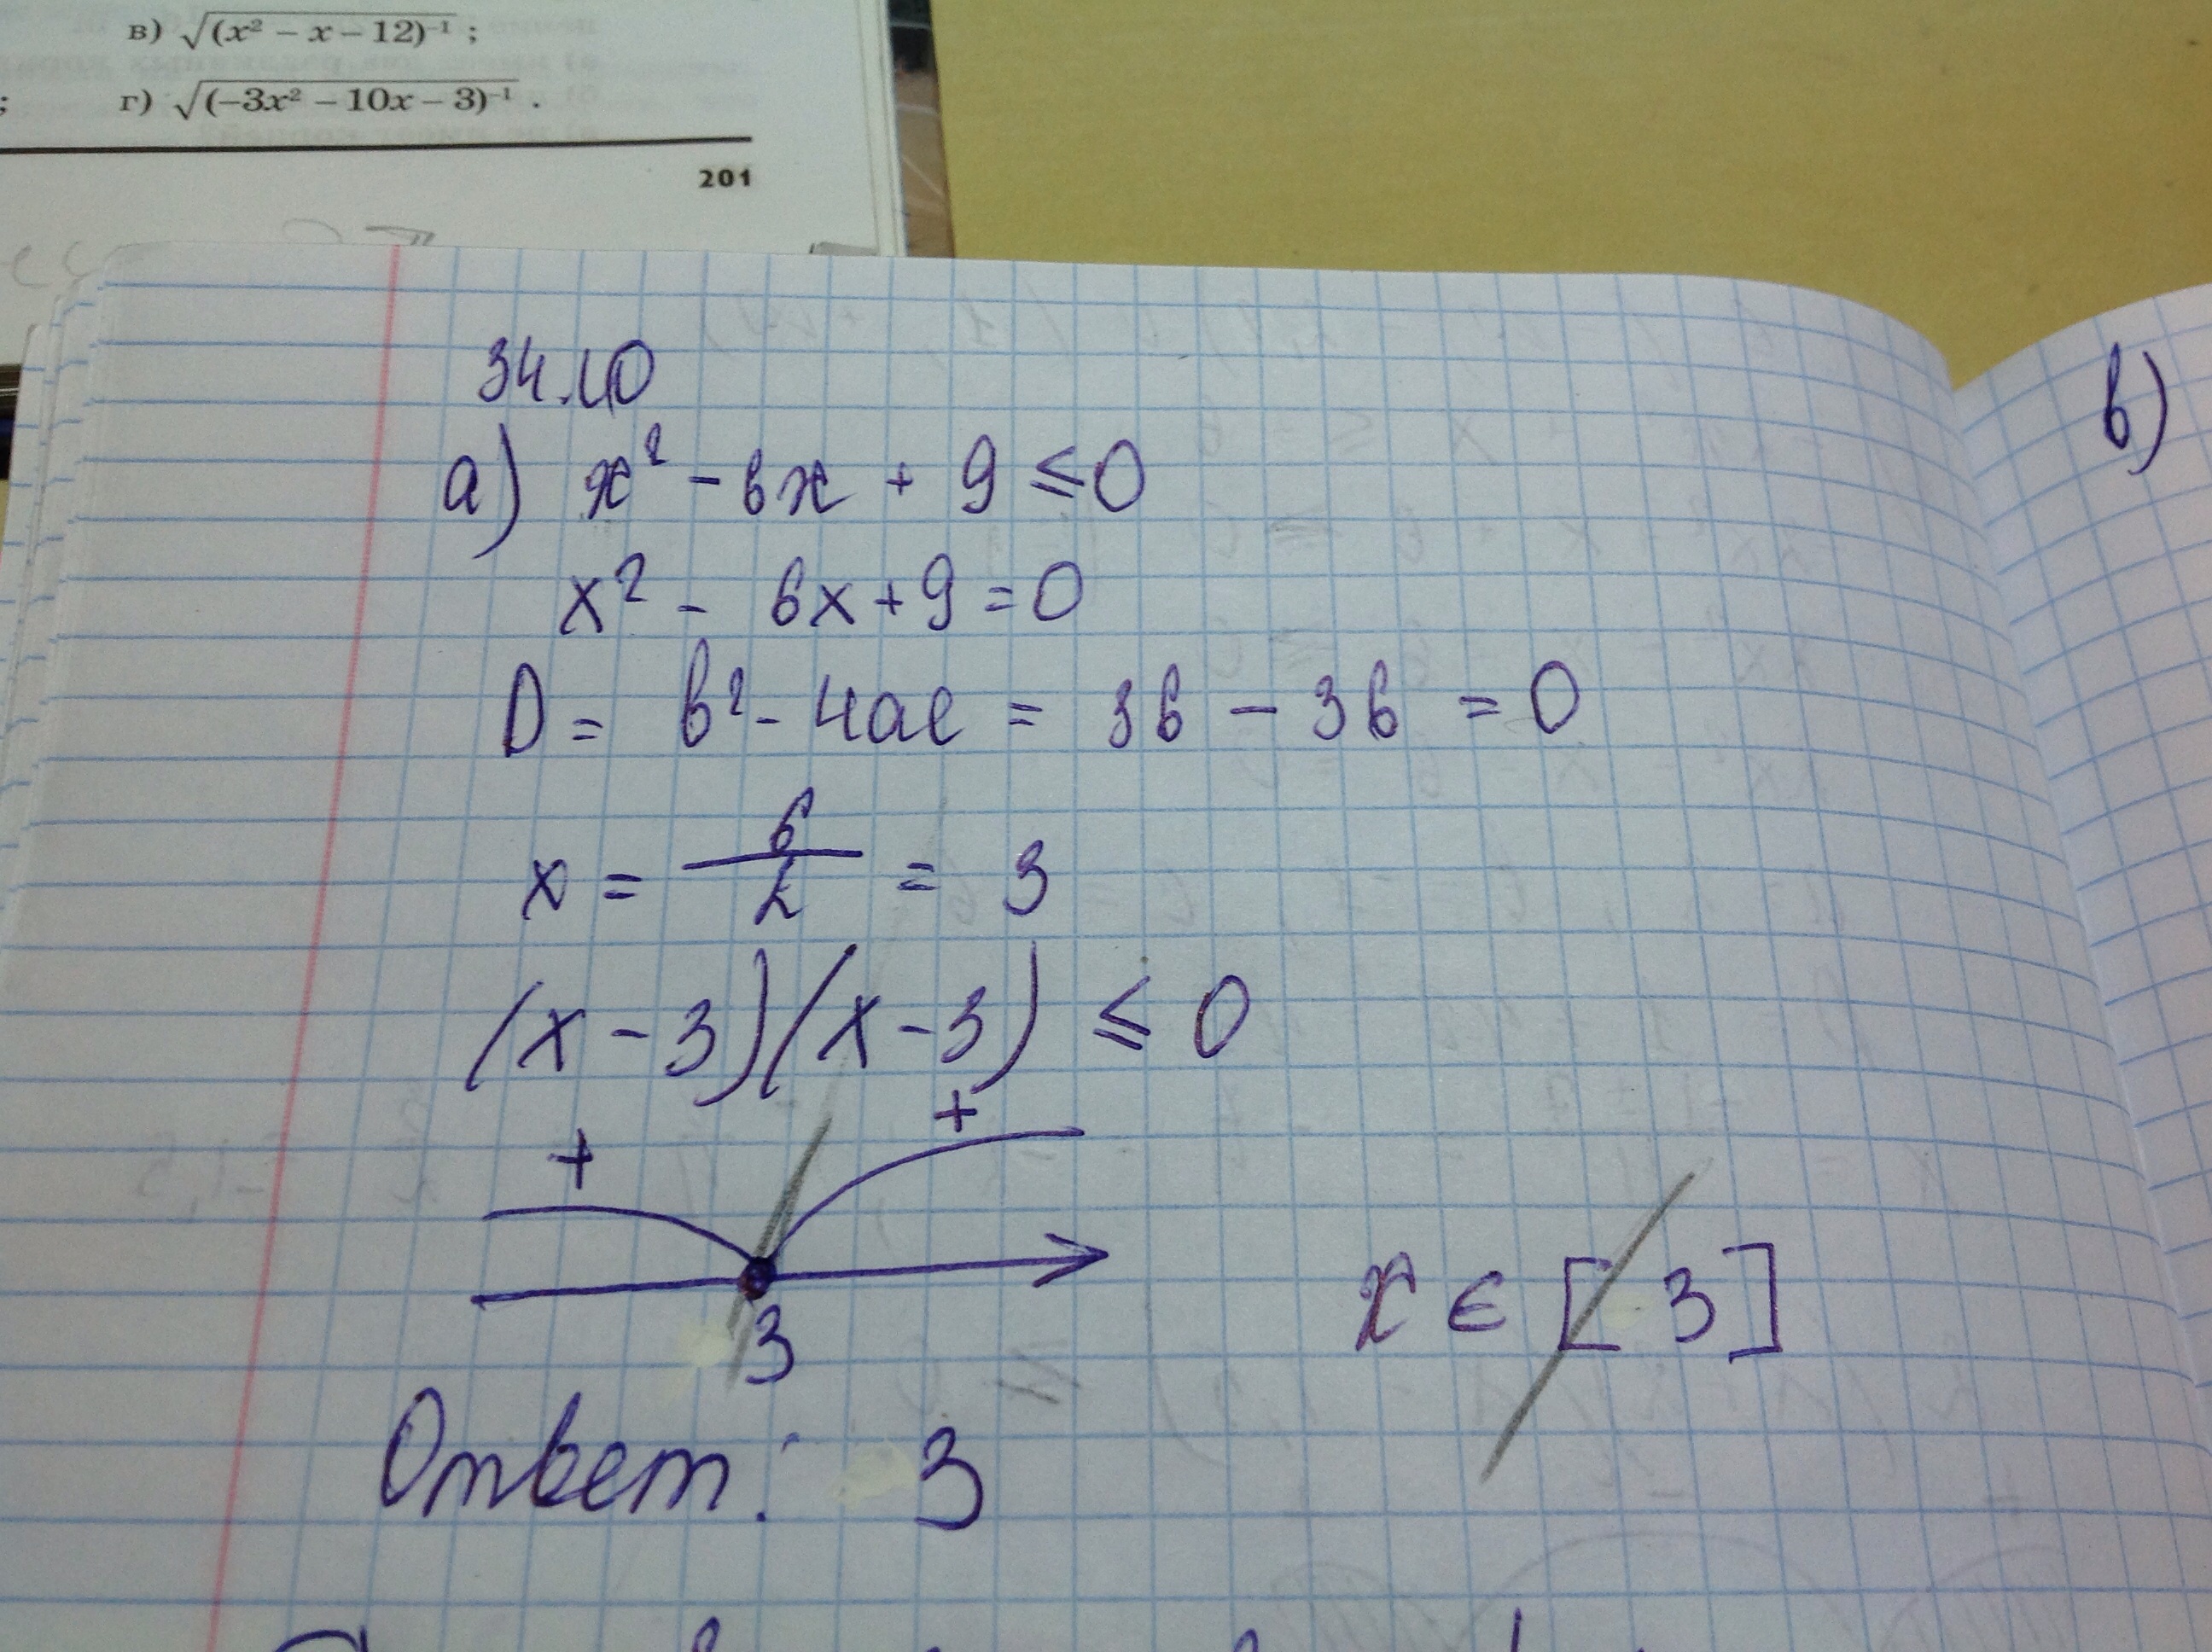 в) √(x² − x − 12)⁻¹ ;
г) √(−3x² − 10x − 3)⁻¹ .
201
34.10
а) x² - 6x + 9 ≤ 0
x² - 6x + 9 = 0
D = b² - 4ac = 36 - 36 = 0
x = 6/2 = 3
(x - 3)(x - 3) ≤ 0
+ +
3
x ∈ [3]
Ответ: 3
в)